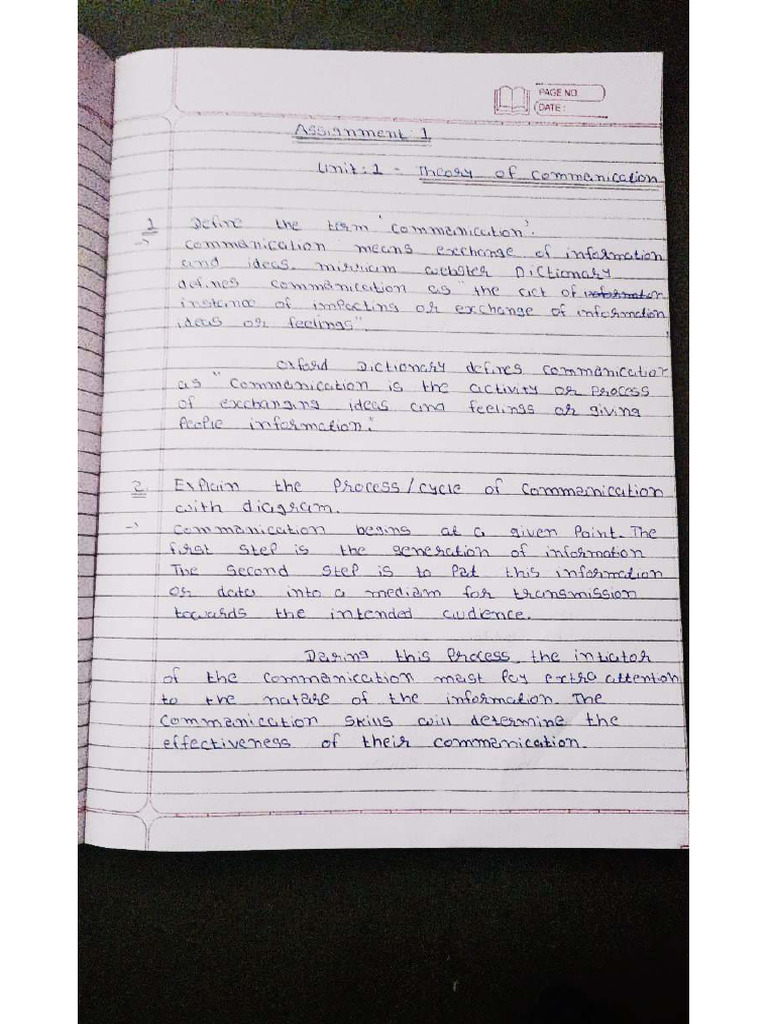 PAGE NO
DATE :
Assignment : 1
Unit : 1 - Theory of Communication
1 Define the term 'communication'.
→ communication means exchange of information
and ideas. mirriam webster Dictionary
defines communication as "the act of
instance of impacting or exchange of information,
ideas or feelings".
Oxford Dictionary defines communication
as "Communication is the activity or process
of exchanging ideas and feelings or giving
People information."
2 Explain the Process/cycle of communication
with diagram.
→ Communication begins at a given Point. The
first step is the generation of information
The second step is to Put this information
or data into a medium for transmission
towards the intended audience.
During this Process, the intiator
of the communication must Pay extra attention
to the nature of the information. The
Communication skills will determine the
effectiveness of their communication.